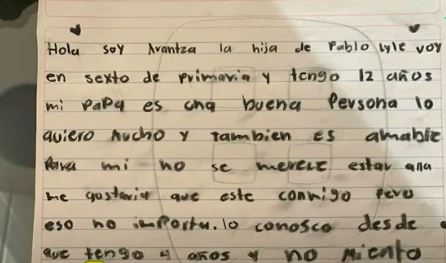 Hola soy Arantza la hija de Pablo Lyle voy
en sexto de primaria y tengo 12 años
mi papa es una buena persona lo
quiero Mucho y Tambien Es amable
Para mi no se merece estar ana
me gustaria que este conmigo pero
eso no importa. lo conosco desde
que tengo 4 años y no miento